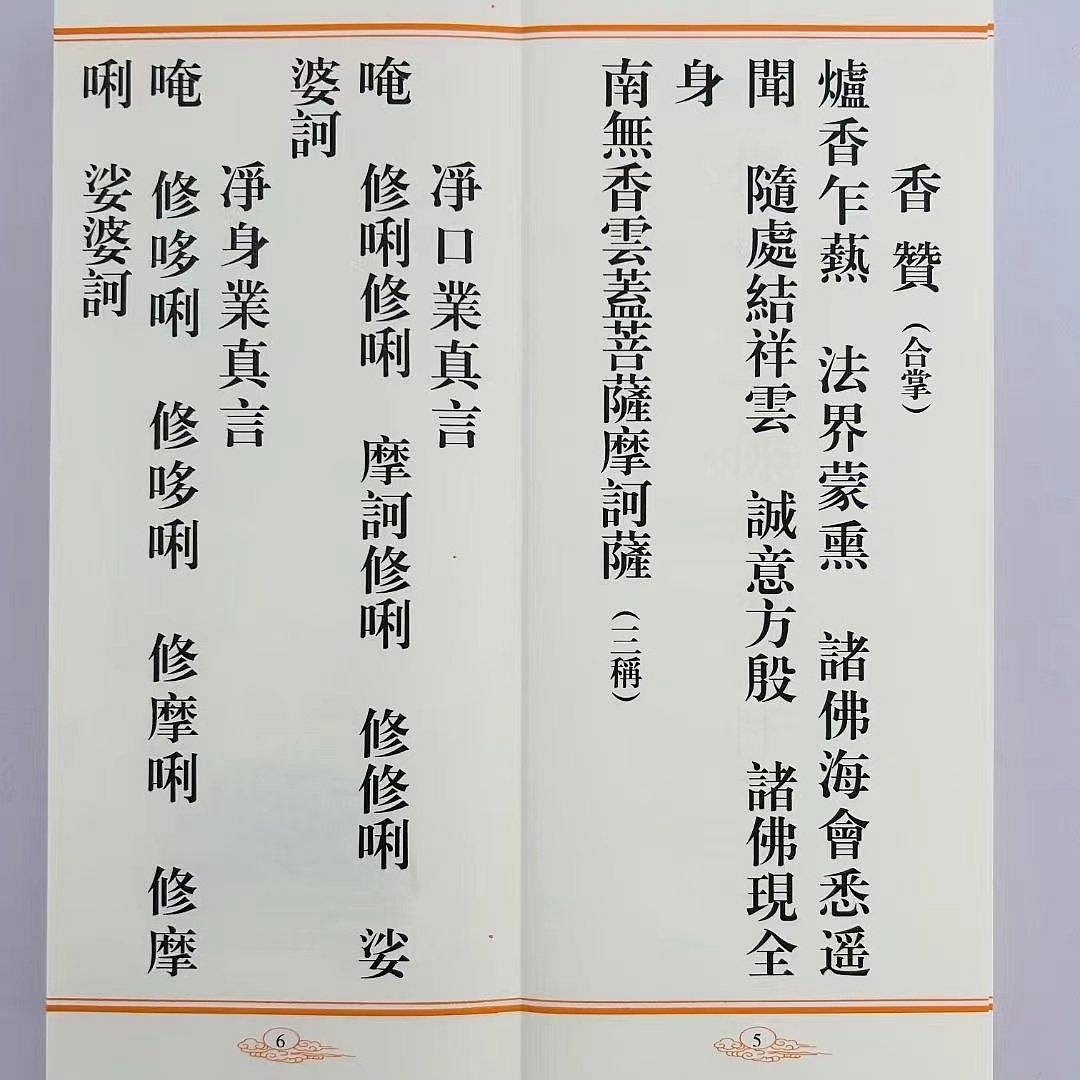 香贊（合掌）
爐香乍熱　法界蒙熏　諸佛海會悉遥
聞　隨處結祥雲　誠意方殷　諸佛現全
身
南無香雲蓋菩薩摩訶薩（三稱）
5
凈口業真言
唵　修唎修唎　摩訶修唎　修修唎　娑
婆訶
凈身業真言
唵　修哆唎　修哆唎　修摩唎　修摩
唎　娑婆訶
6